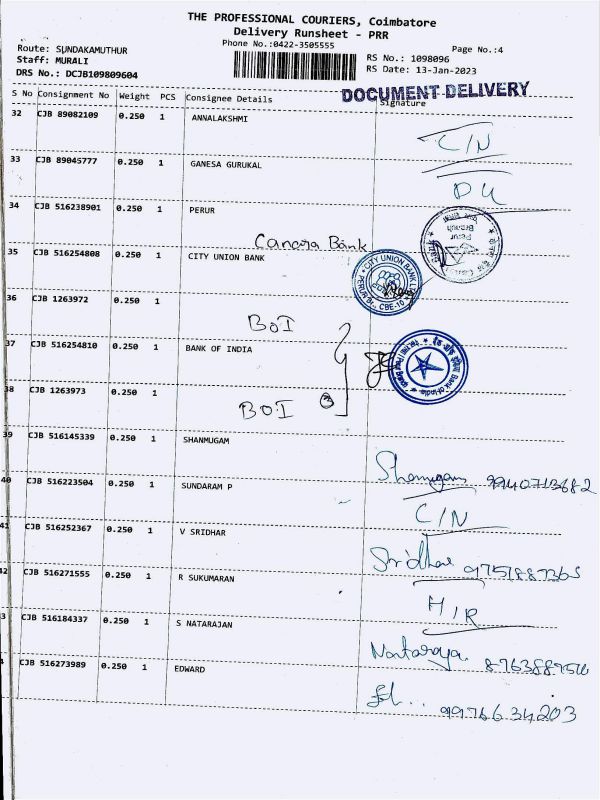 THE PROFESSIONAL COURIERS, Coimbatore
Delivery Runsheet - PRR
Phone No.:0422-3505555
Page No.:4
Route: SUNDAKAMUTHUR
Staff: MURALI
RS No.: 1098096
DRS No.: DCJB109809604
RS Date: 13-Jan-2023
DOCUMENT DELIVERY
S No Consignment No Weight PCS Consignee Details Signature
32 CJB 89082109 0.250 1 ANNALAKSHMI
C/N
33 CJB 89045777 0.250 1 GANESA GURUKAL
34 CJB 516238901 0.250 1 PERUR
Canara Bank
35 CJB 516254808 0.250 1 CITY UNION BANK
CITY UNION BANK
36 CJB 1263972 0.250 1
BOI
37 CJB 516254810 0.250 1 BANK OF INDIA
Bank of India
38 CJB 1263973 0.250 1
BOI 3
39 CJB 516145339 0.250 1 SHANMUGAM
Shanmugam 9940713682
40 CJB 516223504 0.250 1 SUNDARAM P
C/N
41 CJB 516252367 0.250 1 V SRIDHAR
Sridhar
42 CJB 516271555 0.250 1 R SUKUMARAN
H/R
3 CJB 516184337 0.250 1 S NATARAJAN
Nataraja
CJB 516273989 0.250 1 EDWARD
9976634203